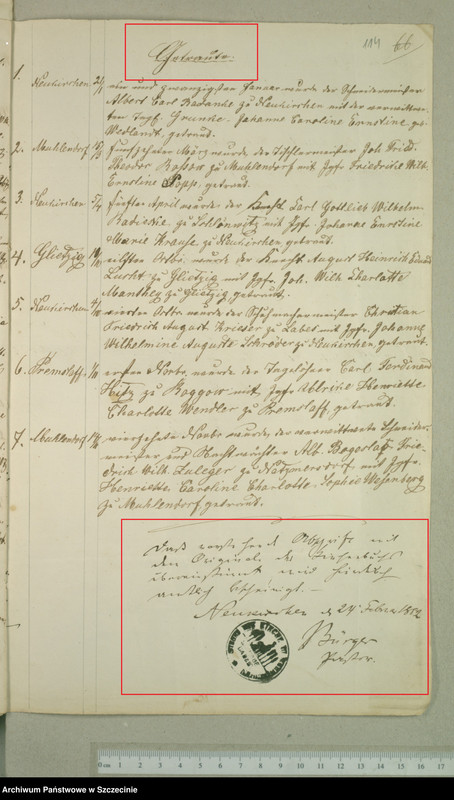 Getraute.
114 66
1. Neukirchen 21/1 ein und zwanzigsten Januar wurde der Schneidermeister
Albert Carl Radanke zu Neukirchen mit der verwittwe-
ten Grunke, Johanne Caroline Ernstine geb.
Wedlandt, getraut.
2. Muhlendorf 15/3 fünfzehnten März wurde der Tischlermeister Joh. Fried.
Theodor Bassow zu Muhlendorf mit Jgfr. Friedricke Wilh.
Ernstine Popp, getraut.
3. Neukirchen 5/4 fünften April wurde der Knecht Carl Gottlieb Wilhelm
zu Schlönwitz mit Jgfr. Johanne Ernstine
Marie Krause zu Neukirchen, getraut.
4. Glietzig eilften Octbr. wurde der Knecht August Heinrich
zu Glietzig mit Jgfr. Joh. Wilh. Charlotte
Manthey zu Glietzig, getraut.
5. Neukirchen vierten Octbr. wurde der Schuhmachermeister Christian
Friedrich August Krieser zu Labes mit Jgfr. Johanne
Wilhelmine Auguste Schröder zu Neukirchen, getraut.
6. Premslaff ersten Novbr. wurde der Tagelöhner Carl Ferdinand
zu Roggow mit Jgfr. Ulrike Henriette
Charlotte Wendler zu Premslaff, getraut.
7. Muhlendorf vierzehnte Novbr. wurde der verwittwete Schneider-
meister und Alb. Bogislaf Frie-
drich Wilh. Zuleger zu Natzmersdorf mit Jgfr.
Henriette Caroline Charlotte Sophie Wesenberg
zu Muhlendorf, getraut.
Daß vorstehende Abschrift mit
dem Originale des Kirchenbuchs
übereinstimmt wird hierdurch
amtlich bescheinigt.
Neukirchen d. 24 Februar
Bürger
Pastor.
0 cm 1 2 3 4 5 6 7 8 9 10 11 12 13 14 15 16 17
Archiwum Państwowe w Szczecinie